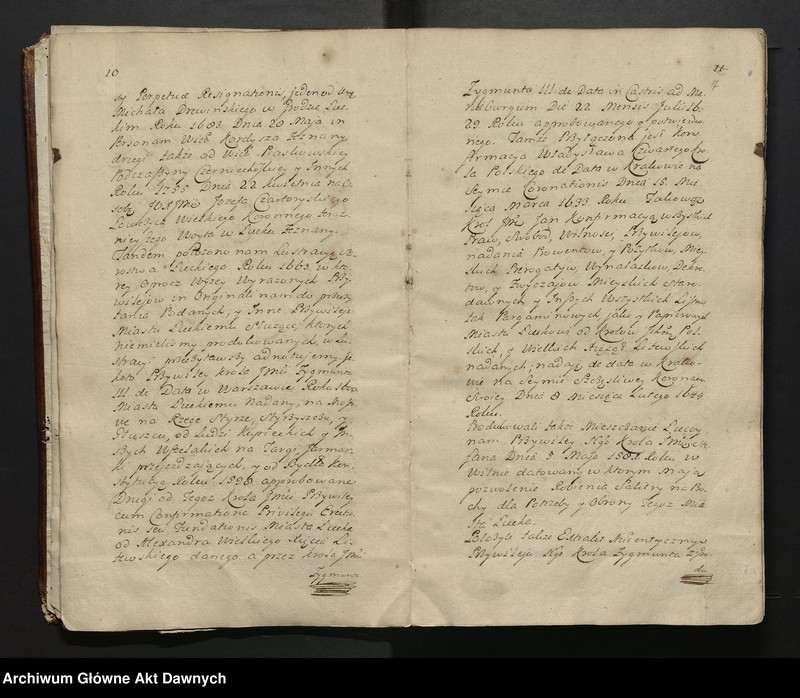 10
sty Perpetuæ Resignationis, jeden od Urę
Michała Drewińskiego w Grodzie Łuc-
kim Roku 1683. Dnia 20 Maja in
Personam Wżeh Kordysza zeznany
drugi także od Wżeh Piaskowskiey
Podczaszyny Czerniechowskiey y Innych
Roku 1755 Dnia 22 Kwietnia na O-
sobę Jozefa Czartoryskiego
Wielkiego Koronnego
Woyta w Łucku zeznany.
Tandem położono nam Lustracyą Sta-
rostwa Łuckiego Roku 1663. w kto-
rey oprocz Wyżey Wyrażonych Przy-
wilejow in Originali nam do przeczy-
tania Podanych, y Inne Przywileje
Miastu Łuckiemu służące, ktorych
niemieliśmy produkowanych, w Lu-
stracyi przeczytawszy adnotujemy ja-
koto Przywiley krola Jmci Zygmunta
III. de Data w Warszawie Roku
Miastu Łuckiemu Nadany, na Mosto-
we na Rzece Styrze,
od Ludzi Kupieckich y In-
szych Wszelakich na Targi Jarmar-
ki przejeżdzających, y od Bydła Kon-
stytucyą Roku 1590 approbowane
Drugi od Tegoż Krola Jmci Przywiley
cum Confirmatione Privilegij Erectio-
nis seu Fundationis Miasta Łucka
od Alexandra Wielkiego Xiążęcia Li-
tewskiego danego a przez krola Jmci
Zygmunta
11
7
Zygmunta III de Data in Castris ad Me-
Die 22 Mensis Julii 16-
29 Roku approbowanego y potwierdzo-
nego. Tamże Przyłączona jest kon-
firmacya Władysława Czwartego Kro-
la Polskiego de Data w Krakowie na
Seymie Coronationis Dnia 15. Mie-
siąca Marca 1633 Roku. Takowąż
Krol Jmć Jan Konfirmacyą wszystkich
Praw, Swobod, Wolności, Przywilejow,
nadania Prowentow, y Pożytkow, Miey-
skich Prerogatyw, Wynalazkow, Dekre-
tow, y Zwyczajow Mieyskich Staro-
dawnych, y Inszych Wszystkich Listow
tak Pargaminowych jako y Papierowych
Miastu Łuckowi od Krolow Ichm Pol-
skich, y Wielkich Xiążąt Litewskich
nadanych, nadaje de data w Krako-
wie na Seymie Szczęśliwey Koronacyi
Swojey Dnia 8 Miesiąca Lutego 1649
Roku.
Produkowali także Mieszczanie Łuccy
nam Przywiley Krola Jmci
Dnia 9. Maja Roku w
Wilnie datowany w ktorym maja
pozwolenie Robienia Saletry na Pro-
chy dla Potrzeby y Obrony Tegoż Mia-
sta Łucka.
Położyli także Extrakt Autentyczny
Przywileju Krola Zygmunta